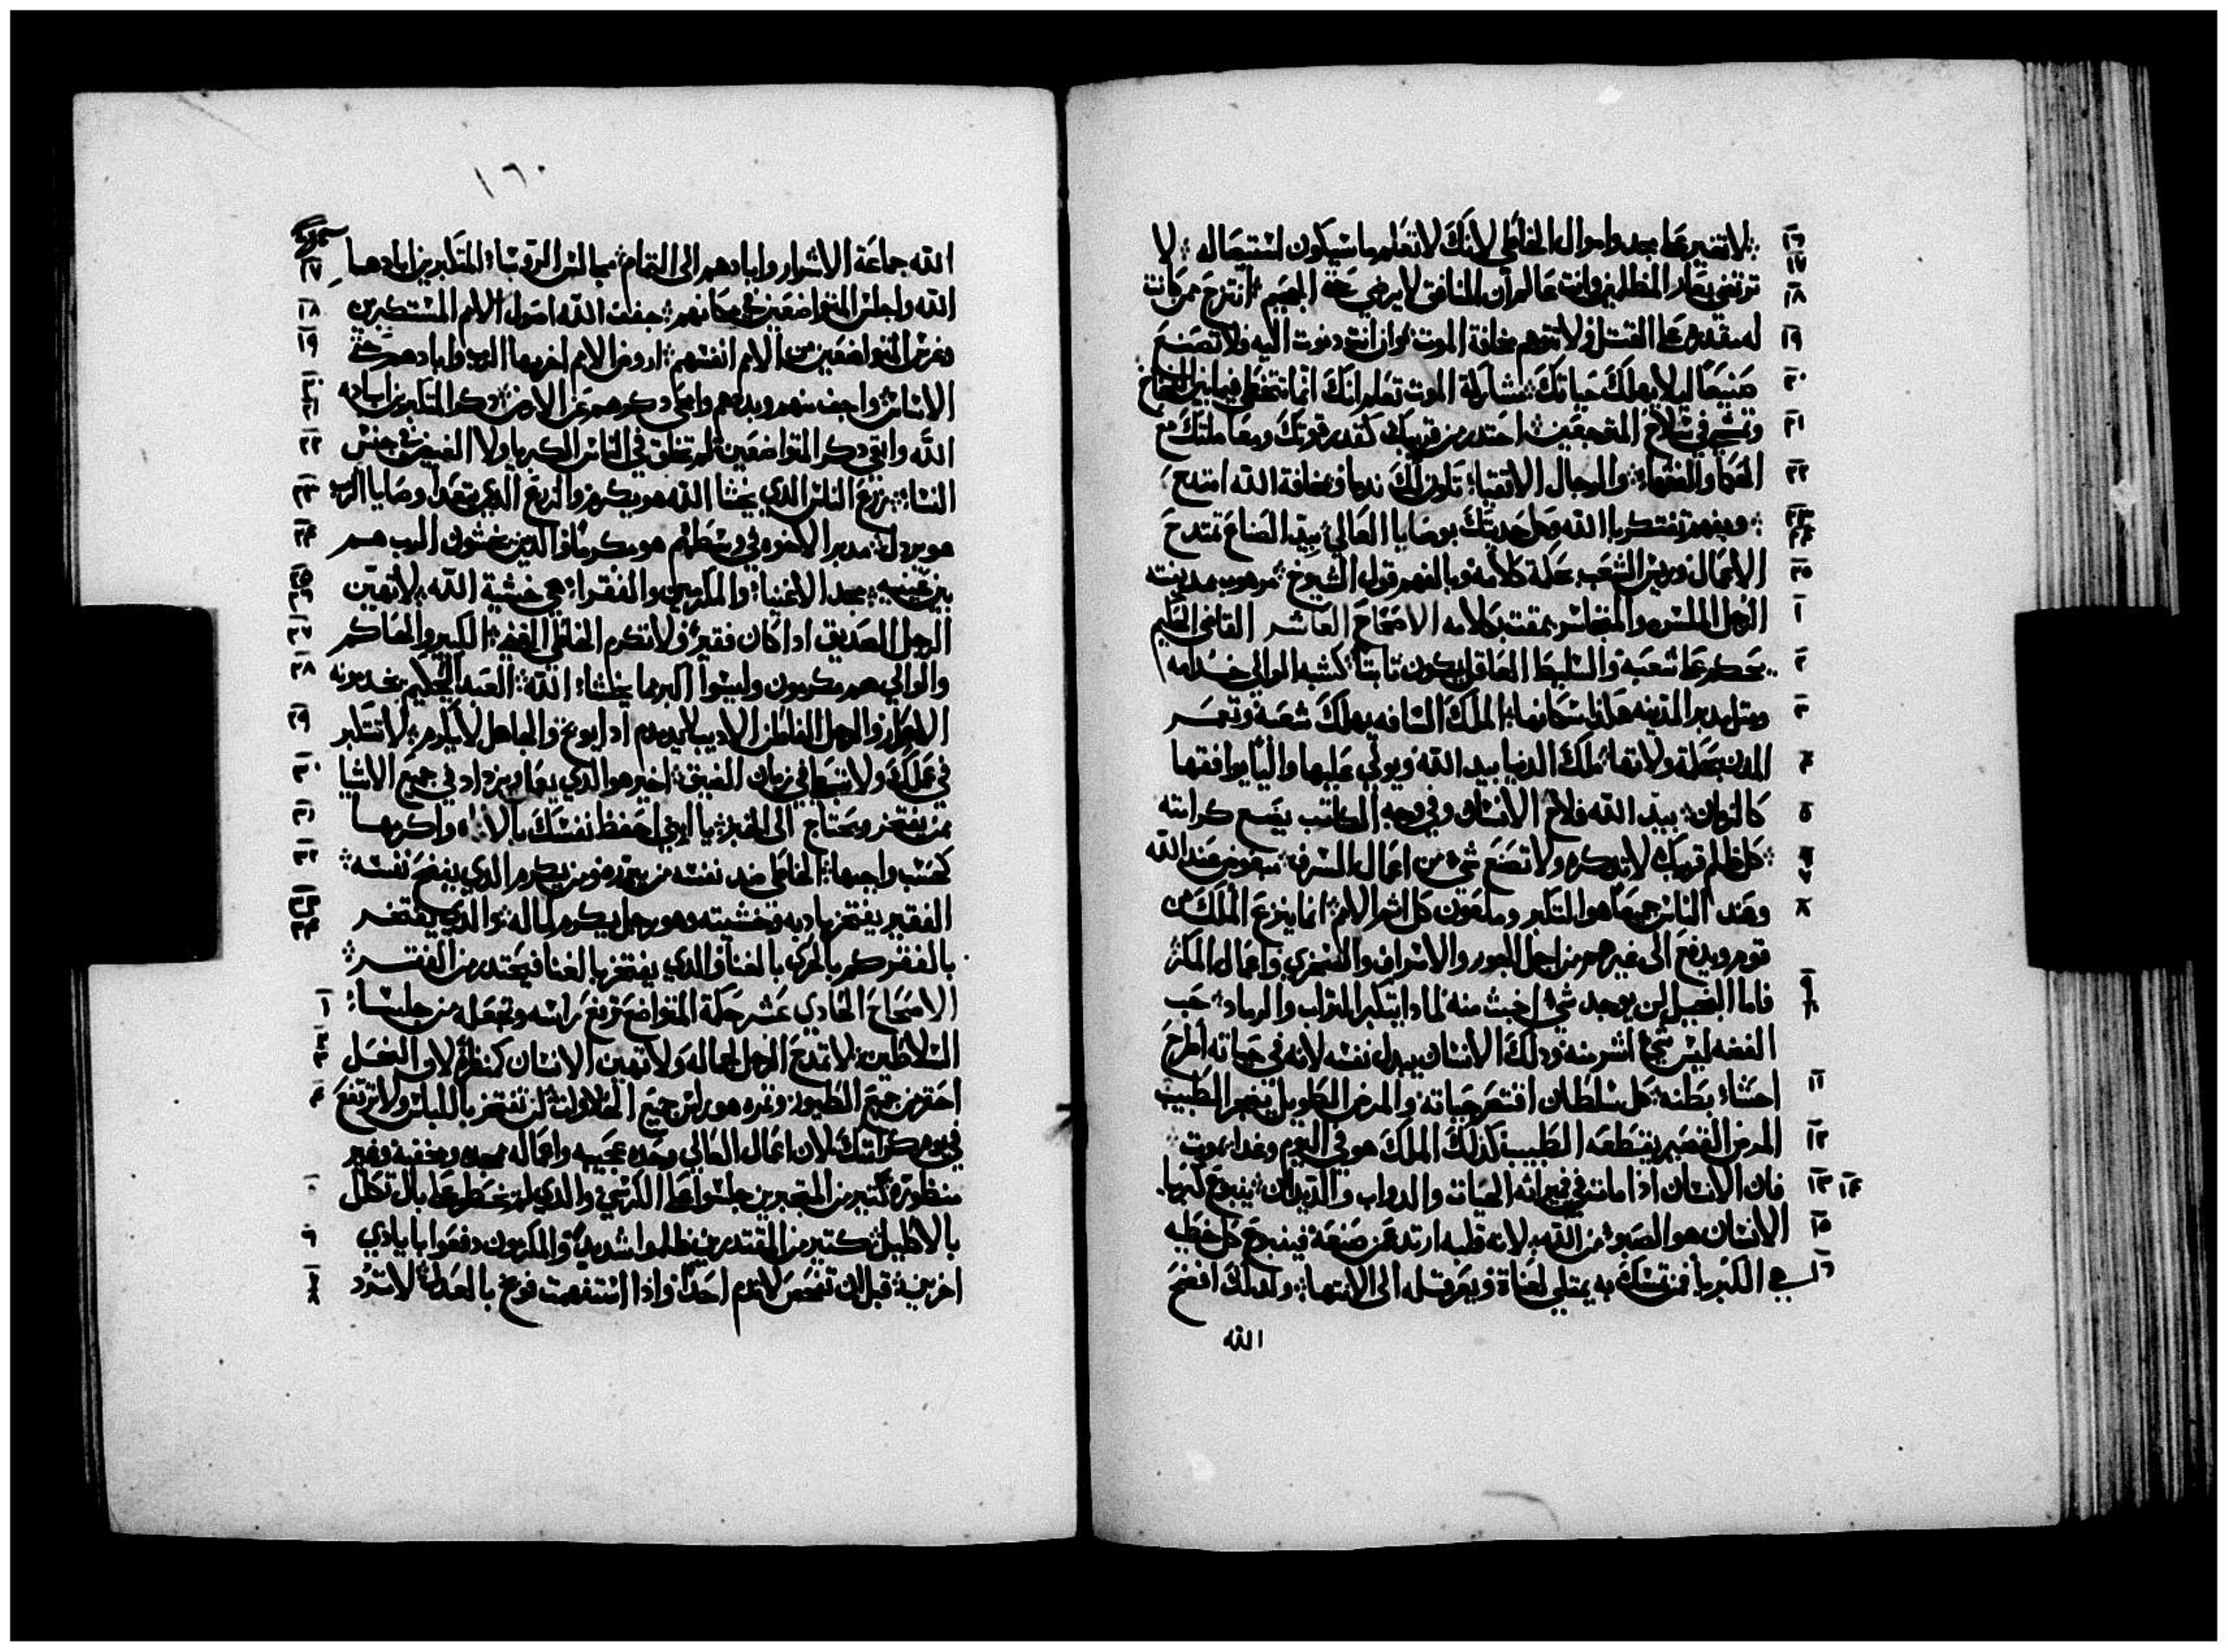 لا تتغير على مجد واموال الخاطي لانك لا تعلم ما سيكون استيصاله لا ١٦
ترتضي بعار المظلومين وانت عالم ان المنافق لا يرضي حتى الجحيم انتزح ممن كانت ١٧ ١٨
له مقدره على القتل ولا تتوهم مخافة الموت وان انت دنوت اليه فلا تصنع ١٩
صنيعا ليلا يهلك حياتك بشاركة الموت تعلم انك انما تتخطى فيما بين الفخاخ ٢٠
وتمشي في سلاح المتوجعين احتدر من قريبك كقدر قوتك ومعاملتك مع ٢١
الحكما والفقها والرجال الاتقيا تكون لك ندما وبمخافة الله امتدح ٢٢
وبفهم تفتكر بالله وكل حديتك بوصايا العالي بيد الصناع تمتدح ٢٣ ٢٤
الاعمال وريس الشعب بحكمة كلامه وبالفهم قول الشيوخ مرهوب بمدينته ٢٥
الرجل الملسن والمتجاسر يمقت بكلامه الاصحاح العاشر القاضي الحكيم ١
يحكم على شعبه والسليط العاقل يكون تابتا كشبه الوالي خدامه ٢
ومتل مدبر المدينه هكذا سكانها الملك السافه يهلك شعبه وتعمر ٣
المدن بحكمة ولاتها ملك الدنيا بيد الله ويولي عليها واليا يوافقها ٤
كالزمان بيد الله فلاح الانسان وفي وجه الكاتب يضع كرامته ٥
كل ظلم قريبك لا تدكره ولا تصنع شي من اعمال السرف مبغوض عند الله ٦ ٧
وعند الناس جميعا هو التكبر وملعون كل اثم الامم انما ينزع الملك من ٨
قوم ويدفع الى غيرهم من اجل الجور والاسراف والافتري واعمال المكر
فاما البخيل لن يوجد شي اخبث منه لمادا يتكبر التراب والرماد حب ٩ ١٠
الفضه ليس شي اشر منه ودلك الانسان يبدل نفسه لانه في حياته اطرح
احشاء بطنه كل سلطان اقتصر حياته والمرض الطويل يضجر الطبيب ١١
المرض القصير يقتطعه الطبيب كذلك الملك هو في اليوم وغدا يموت ١٢
فان الانسان ادا مات في ميراثه الحيات والدواب والديدان ينبوع كبريا ١٣ ١٤
الانسان هو الصبو من الله لان قلبه ارتد عمن صنعه فينبوع كل خطيه ١٥
هي الكبريا فمن تمسك به يمتلي لعناة ويعرقله الى الانتها ولدلك افضح ١٦
الله
١٦٠
الله جماعة الاشرار وابادهم الى التمام مجالس الروسا المتكبرين ابادها ١٧
الله واجلس المتواضعين في مكانهم جفف الله اصول الامم المستكبرين ١٨
وغرس المتواضعين من الامم انفسهم اروض الامم اخربها الرب وابادهم حتى ١٩
الاساس واجف منهم وبددهم وامحى دكرهم عن الارض دكر المتكبرين اباده ٢٠ ٢١
الله وابقى دكر المتواضعين لم تخلق في الناس الكبريا ولا الغيض في جنس ٢٢
النسا زرع الناس الدي يخشا الله هو يكرم والزرع الدي يتعدا وصايا الرب ٢٣
هو يردل مدبر الاخوه في وسطهم هو مكرما والدين يخشون الرب هم ٢٤
بين عينيه مجد الاغنيا والمكرمين والفقرا هي خشية الله لا تهين ٢٥ ٢٦
الرجل الصديق ادا كان فقيرا ولا تكرم الخاطي الغني الكبير والحاكم ٢٧
والوالي هم مكرمون وليسوا اكبر مما يخشا الله العبد الحكيم يخدمونه ٢٨
الاحرار والرجل الفاطن الاديب لا يدمدم ادا بوخ والجاهل لا يكرم لا تتكبر ٢٩
في عملك ولا تتوانا في زمان الضيق اخير هو الدي يعمل ويزداد في جميع الاشيا ٣٠
ممن يفتخر ويحتاج الى الخبز يا ابني احفظ نفسك بالاناه واكرمها ٣١
كحسب واجبها الخاطي ضد نفسه من يبرره ومن يكرم الدي يفضح نفسه ٣٢
الفقير يفتخر بادبه وخشيته وهو رجل يكرم لماله والدي يفتخر ٣٣ ٣٤
بالفقر كم بالحري بالغنا والدي يفتخر بالغنا فيحتدر من الفقر
الاصحاح الحادي عشر حكمة المتواضع ترفع راسه وتجعله من جلسا ١
السلاطين لا تمدح الرجل لجماله ولا تهين الانسان كمنظره لاو النحل ٢ ٣
احقر من جميع الطيور وتمره هو راس جميع الحلاوات لن تفتخر باللباس ولا ترتفع ٤
في يوم كرامتك لان اعمال العالي وحده عجيبه واعماله ممجده ومخفيه وغير
منظوره كتير من المتجبرين جلسوا على الكرسي والدي لم يخطر على بال تكلل ٥
بالاكليل كتير من المقتدرين ظلموا شديدا والمكرمون دفعوا بايادي ٦
اخرين قبل ان تفحص لا تدم احدا وادا استفهمت فوخ بالعدل لا تردد ٧ ٨